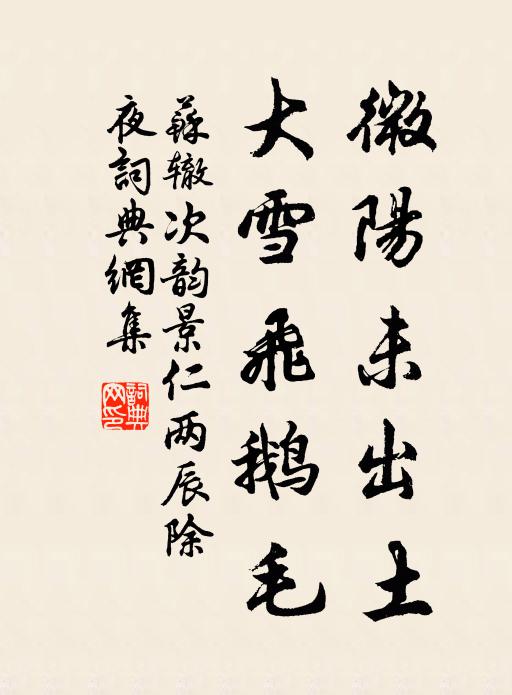 微陽未出土
大雪飛鵝毛
蘇辙次韵景仁两辰除
夜詞典網集
詞典网印